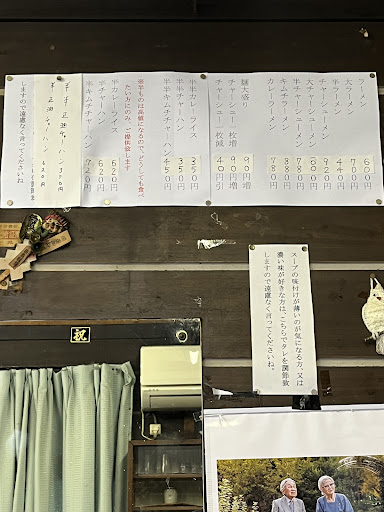 ラーメン 600円
大ラーメン 700円
半ラーメン 440円
チャーシューメン 920円
大チャーシューメン
半チャーシューメン 780円
キムチラーメン
カレーラーメン 780円
麺大盛り 90円増
チャーシュー一枚増 90円増
チャーシュー一枚減 40円引
半半カレーライス 350円
半半チャーハン 350円
半半キムチチャーハン 450円
※半ものは高値になるので、どうしても食べ
たい方にのみ、ご提供致します
半カレーライス 620円
半チャーハン 620円
半キムチチャーハン 720円
半半正油チャーハン
半正油チャーハン
しますので遠慮なく言ってくださいね
スープの味付けが薄いのが気になる方、又は
濃い味が好きな方は、こちらでタレを調節致
しますので遠慮なく言ってくださいね。
祝